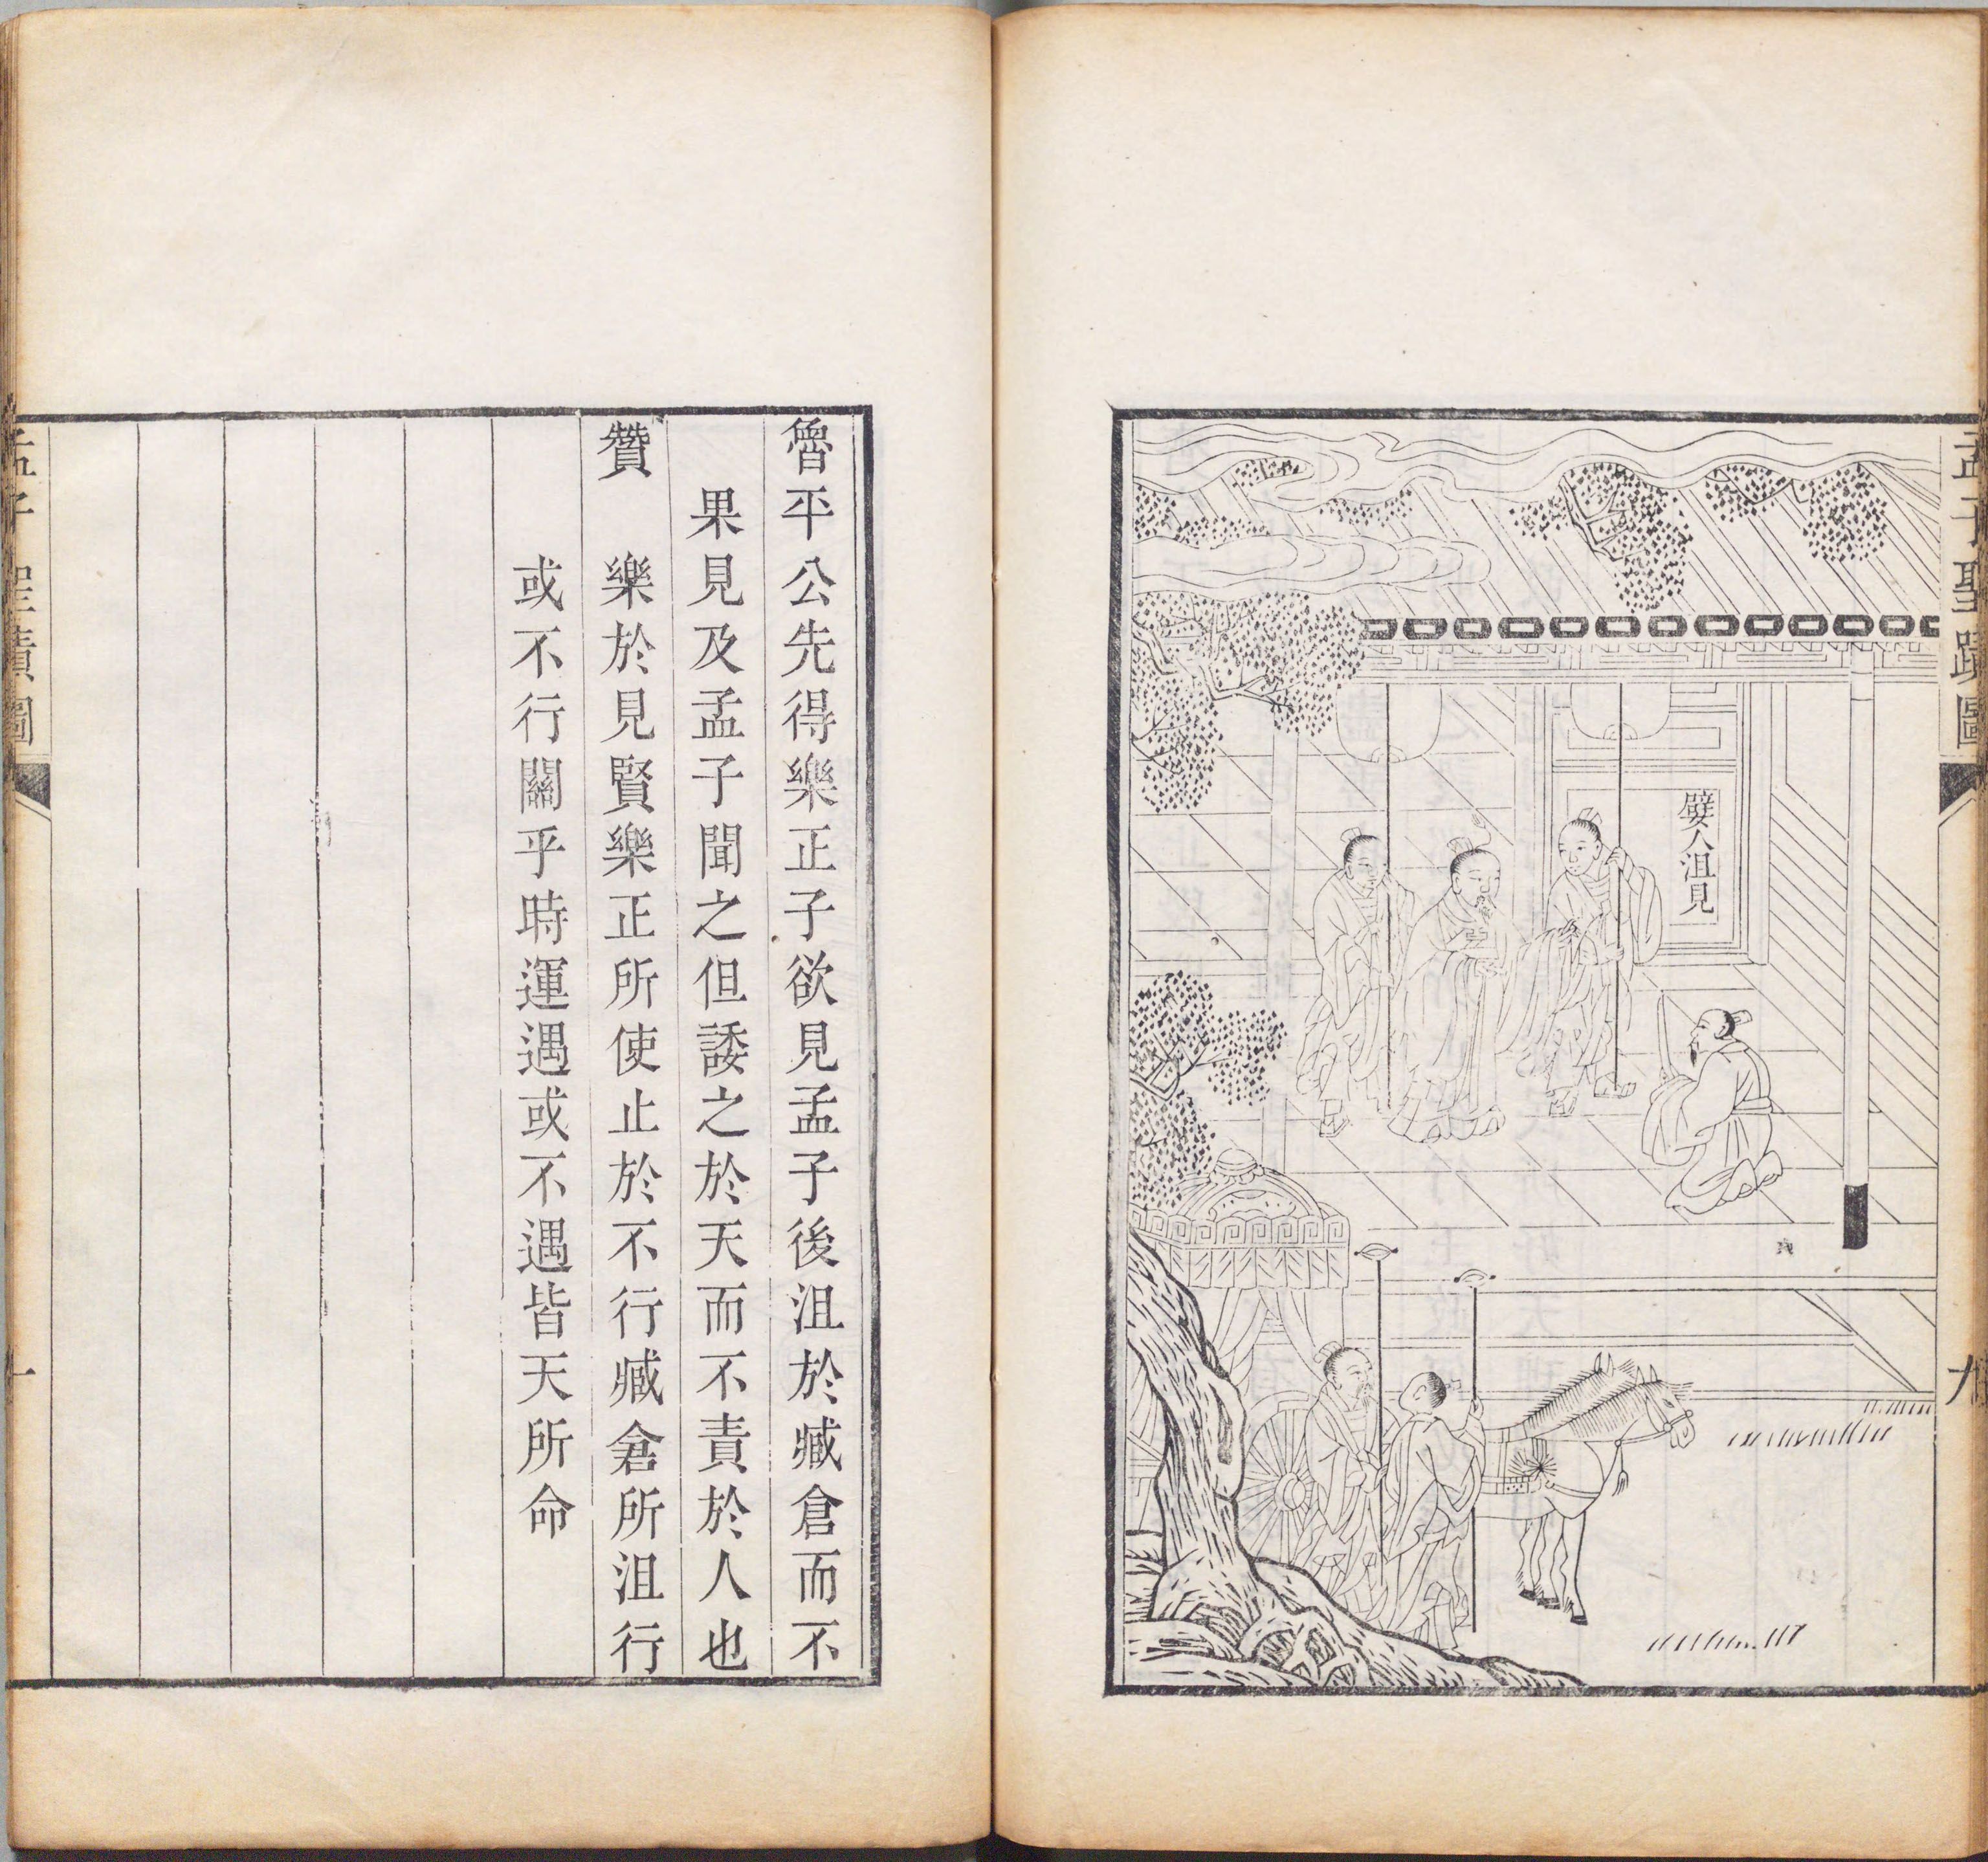 孟子聖蹟圖
九
嬖人沮見
魯平公先得樂正子欲見孟子後沮於臧倉而不
果見及孟子聞之但諉之於天而不責於人也
贊　樂於見賢樂正所使止於不行臧倉所沮行
或不行關乎時運遇或不遇皆天所命
孟子聖蹟圖